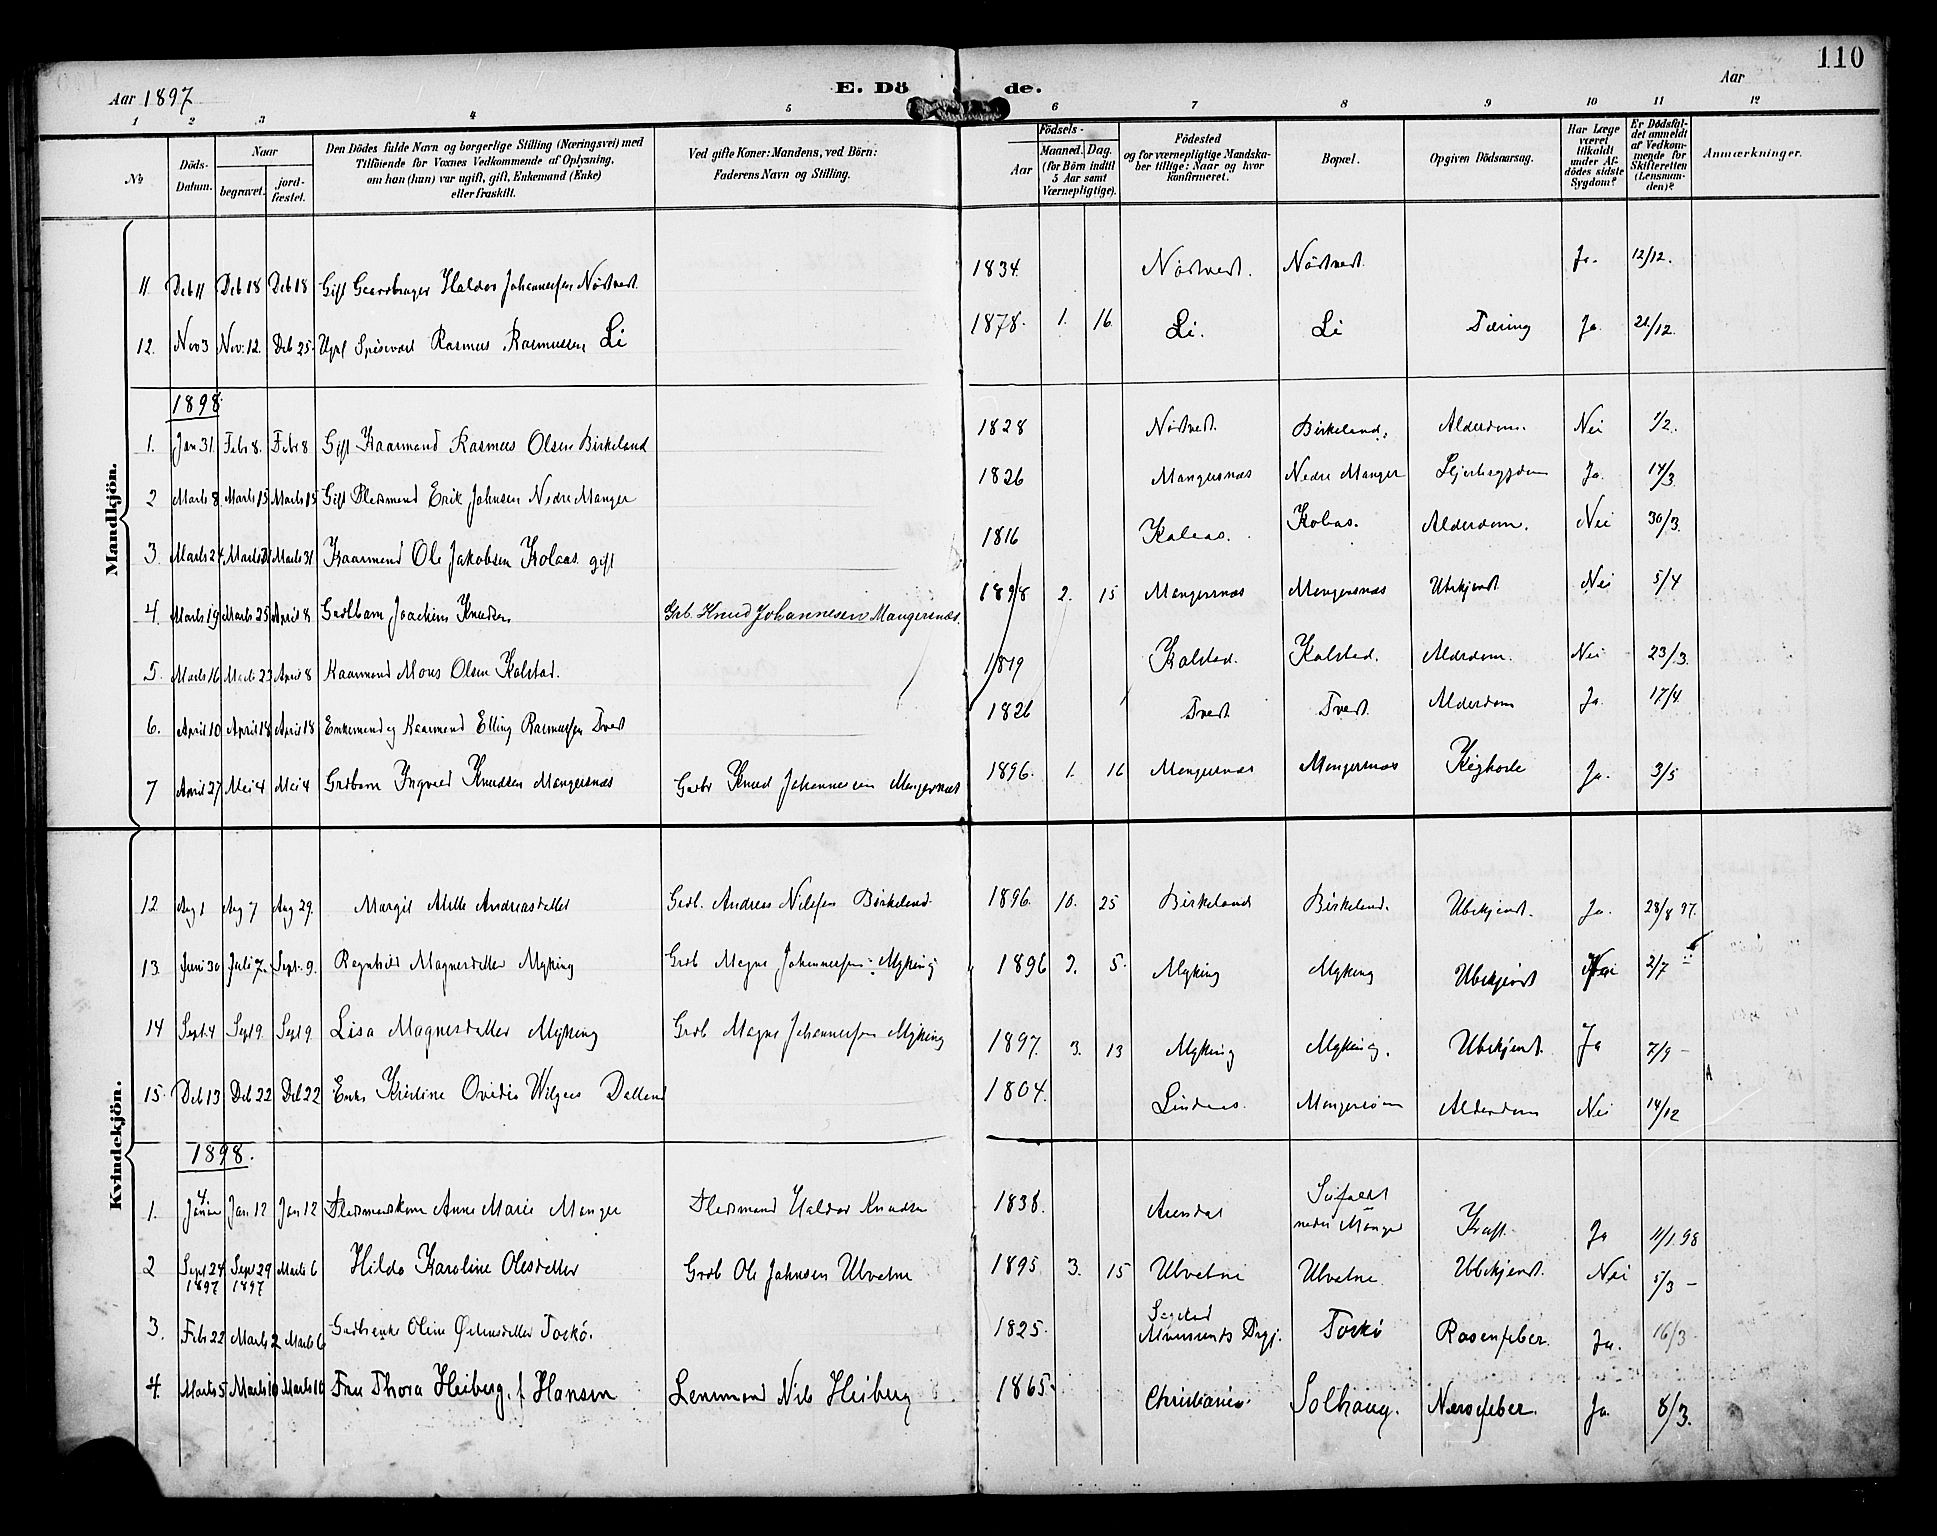 110
Aar 1897
E. Dö de.
Aar
1 2 3 4 5 6 7 8 9 10 11 12
No
Döds-Datum.
Naar
begravet.
jordfæstet.
Den Dödes fulde Navn og borgerlige Stilling (Næringsvei) med
Tilföiende for Voxnes Vedkommende af Oplysning,
om han (hun) var ugift, gift, Enkemand (Enke)
eller fraskilt.
Ved gifte Koner: Mandens, ved Börn:
Faderens Navn og Stilling.
Födsels-
Aar
Maaned. Dag.
(for Börn indtil
5 Aar samt
Værnepligtige).
Födested
og for værnepligtige Mandskaber tillige: Naar og hvor
konfirmeret.
Bopæl.
Opgiven Dödsaarsag.
Har Læge
været
tilkaldt
under Afdödes sidste
Sygdom?
Er Dödsfaldet anmeldt
af Vedkommende for
Skifteretten
(Lensmanden)?
Anmærkninger.
Mandkjön.
11 Deb 11 Deb 18 Deb 18 Gift Haldor Johannessen Nöstvedt 1834. Nöstvedt. Nöstvedt Ja. 12/12.
12. Nov 3 Nov. 12. Deb 25. Rasmus Rasmussen Li 1878. 1. 16. Li. Li Tæring Ja. 21/12.
1898
1. Jan 31. Febr 8. Febr 8 Gift Kaarmand Rasmus Olsen Birkeland 1828 Nöstvedt. Birkeland. Alderdom. Nei 1/2.
2 Marts 8 Marts 15 Marts 15 Gift Pladsmand Erik Johnsen Nedre Manger 1826 Mangersnæs Nedre Manger Ja. 14/3.
3. Marts 24 Marts 31 Marts 31 Kaarmand Ole Jakobsen Kolaas gift 1816 Kolaas. Kolaas. Alderdom. Nei 30/3.
4. Marts 19 Marts 25 April 8 Grdbarn Joachim Knudsen Grb. Knud Johannesen Mangersnæs. 1898 2. 15 Mangersnæs Mangersnæs Ubekjendt Nei 5/4
5. Marts 16 Marts 23 April 8 Kaarmand Mons Olsen Kalstad. 1819 Kalstad. Kalstad. Alderdom. Nei 23/3.
6. April 10 April 18 April 18 Enkemand og Kaarmand Elling Rasmussen Tvedt 1826 Tvedt Tvedt. Alderdom Ja. 17/4.
7 April 27 Mai 4 Mai 4 Grdbarn Ingvald Knudsen Mangersnæs Gaardbr Knud Johannesen Mangersnæs 1896. 1. 16 Mangersnæs Mangersnæs Kighoste Ja. 3/5
Kvindekjön.
12 Aug 1 Aug 7 Aug 29. Margit Andreasdatter Grdb. Andreas Nilsen Birkeland. 1896. 10. 25 Birkeland Birkeland. Ubekjendt. Ja. 28/8 97.
13. Juni 30 Juli 7. Sept. 9. Ragnhild Magnesdatter Myking Grdb Magne Johannessen Myking 1896 5. Myking Myking Ubekjendt Nei 2/7
14 Sept. 4 Sept 9. Sept 9 Lisa Magnesdatter Myking Grdb Magne Johannessen Myking 1897. 3. 13 Myking Myking. Ubekjendt. Ja 7/9 -
15. Deb 13 Deb 22 Deb 22 Enke Kristine Ovidia 1804. Lindaas. Alderdom Nei 14/12
1898.
1. 4 Januar Jan 12 Jan 12 Pladsmandskone Anne Marie Manger Pladsmand Haldor Knudsen 1838. Arendal nedre Manger Kræft. Ja 11/1 98
2 Sept 24 1897 Sept 29 1897 Marts 6 Hilda Karoline Olesdatter Grdb Ole Johnsen Ulvatne 1895. 3. 15 Ulvatne Ulvatne. Ubekjendt. Nei 5/3 -
3. Febr 22 Marts 2 Marts 6 Gaardbenke Oline Toskö. 1825. Toskö Rosenfeber. Ja. 16/3
4. Marts 5 Marts 10 Marts 10 Fru Thora Heiberg. f Hansen Lensmand Nils Heiberg 1865. Christiania. Solhaug. Nervefeber. Ja. 8/3.